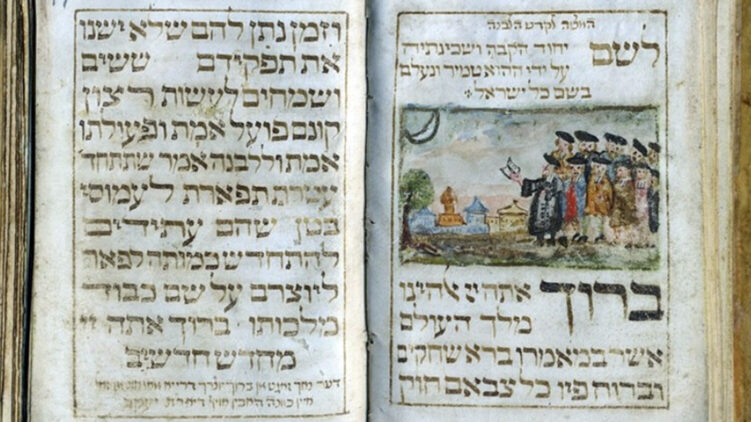 לקדש הלבנה
לשם יחוד הקבה ושכינתיה
על ידי ההוא טמיר ונעלם
בשם כל ישראל:
ברוך אתה יי אלהינו
מלך העולם
אשר במאמרו ברא שחקים
וברוח פיו כל צבאם חוק
וזמן נתן להם שלא ישנו
את תפקידם ששים
ושמחים לעשות רצון
קונם פועל אמת ופעולתו
אמת וללבנה אמר שתתחד
עטרת תפארת לעמוסי
בטן שהם עתידים
להתחדש כמותה לפאר
ליוצרם על שם כבוד
מלכותו ברוך אתה יי
מחדש חדשים